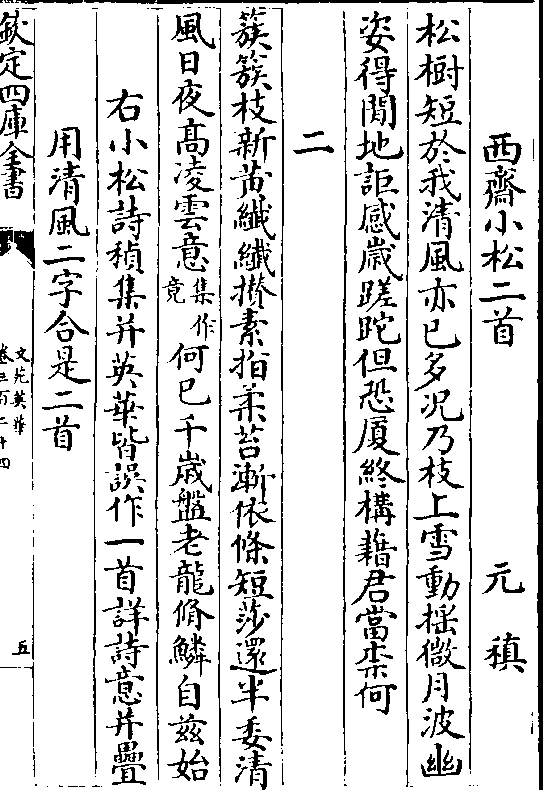 西齋小松二首　元稹
松樹短於我清風亦已多况乃枝上雪動揺微月波幽
姿得閒地詎感歳蹉跎但恐厦終構藉君當柰何
二
簇簇枝新黄纎纎攅素指柔苔漸依條短莎還半委清
風日夜髙凌雲意集作竟何已千歳盤老龍脩鱗自兹始
右小松詩稹集并英華皆誤作一首詳詩意并疊
用清風二字合是二首
欽定四庫全書
文苑英華
卷三百二十四
五